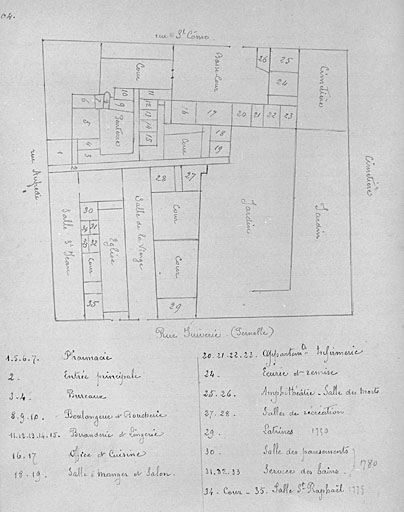 rue St Côme
Cour
Basse-Cour
26
25
24
Cimetière
10
11
6
7
8
9
12
13
14
15
16
17
20
21
22
23
5
4
3
1
2
Cour
18
19
Cimetière
Salle St Jean
30
Cour
35
Eglise
Salle de la Vierge
28
27
Cour
Cour
29
Jardin
Jardin
Rue Juiverie
1.5.6.7. Pharmacie
2. Entrée principale
3-4. Bureaux
8.9.10. Boulangerie et
11.12.13.14.15. Buanderie et Lingerie
16.17 Office et Cuisine
18-19. Salle à manger et Salon.
20.21.22.23. Infirmerie
24. Écurie et remise
25-26. Amphithéâtre - Salle des morts
27-28. Salles de récréation
29. Latrines
30. Salle des pansements
31.32.33 Services des bains 1780
34. Cour - 35. Salle St Raphaël